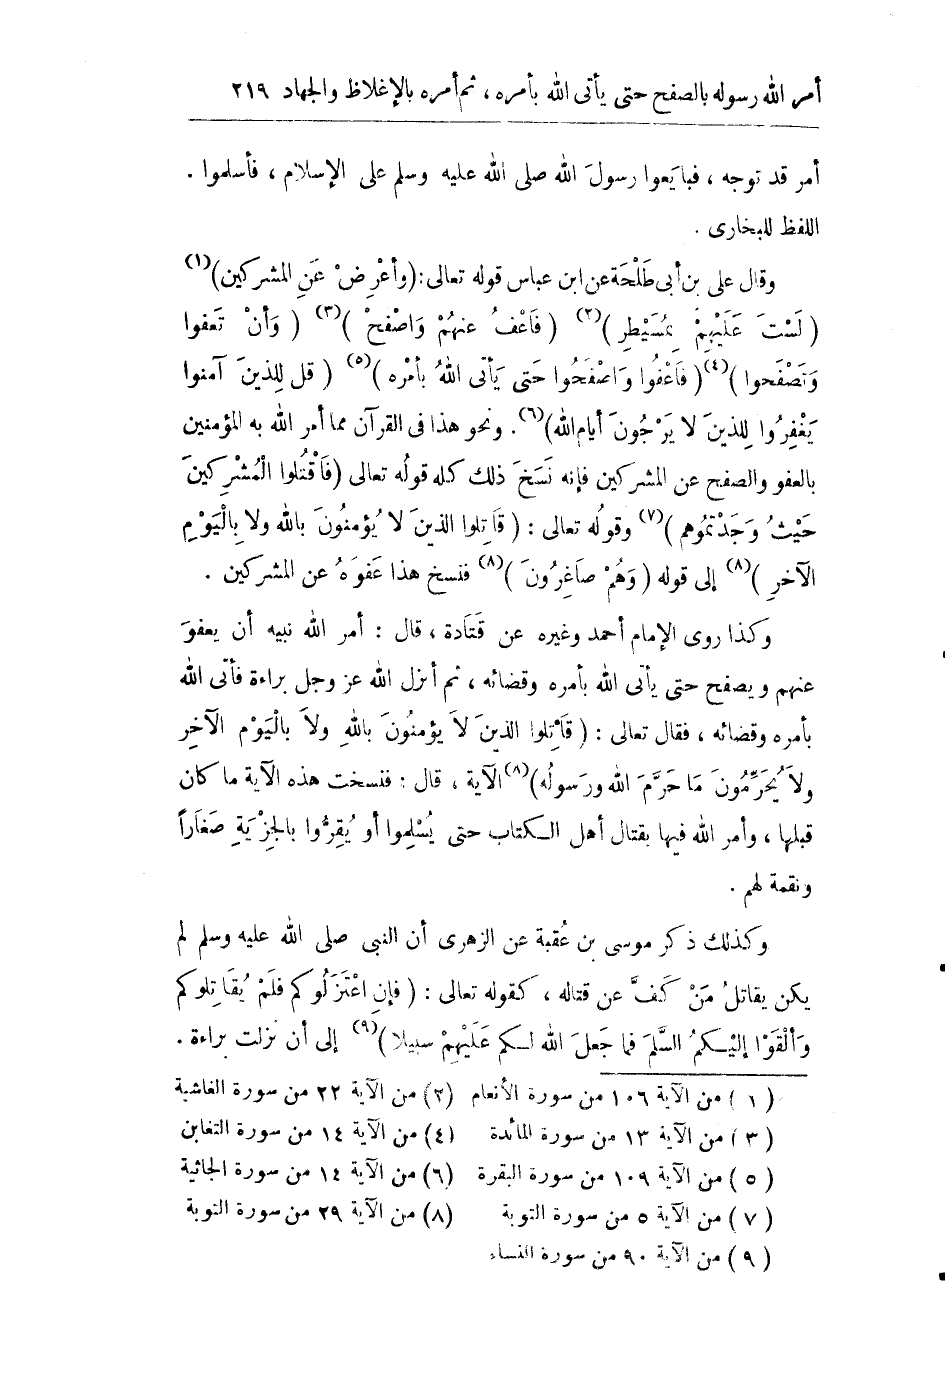 أمر الله رسوله بالصفح حتى يأتى الله بأمره ، ثم أمره بالإغلاظ والجهاد ٢١٩
أمر قد توجه ، فبايَعوا رسولَ الله صلى الله عليه وسلم على الإسلام ، فأسلموا .
اللفظ للبخارى .
وقال على بن أبى طَلْحَة عن ابن عباس قوله تعالى : (وأعْرِضْ عَنِ المشركين)(١)
( لَسْتَ عَلَيْهِمْ بِمُسَيْطِرٍ )(٢) ( فَاعْفُ عنهُمْ وَاصْفحْ )(٣) ( وَأنْ تَعفوا
وَتَصْفَحوا )(٤)( فَاعْفُوا وَاصْفَحُوا حَتى يَأتَى اللهُ بأمْره )(٥) ( قل لِلذينَ آمنوا
يَغْفِرُوا لِلذينَ لا يَرْجُونَ أيام الله)(٦) . ونحو هذا فى القرآن مما أمر الله به المؤمنين
بالعفو والصفح عن المشركين فإنه نَسَخَ ذلك كله قولُه تعالى (فَاقْتُلوا الْمُشْرِكِينَ
حَيْثُ وَجَدْتُمُوهم )(٧) وقولُه تعالى : ( قَاتِلوا الذينَ لا يُؤمنُونَ بالله ولا بِالْيَوْمِ
الآخرِ )(٨) إلى قوله ( وَهُمْ صاغِرُونَ )(٨) فنسخ هذا عَفوَهُ عن المشركين .
وكذا روى الإمام أحمد وغيره عن قَتَادة ، قال : أمر الله نبيه أن يعفوَ
عنهم ويصفح حتى يأتى الله بأمره وقضائه ، ثم أنزل الله عز وجل براءة فأتى الله
بأمره وقضائه ، فقال تعالى : ( قَاتِلوا الذينَ لاَ يؤمنُونَ باللهِ ولاَ بالْيَوْم الآخِرِ
ولاَ يُحَرِّمُونَ مَا حَرَّمَ الله ورَسولُه)(٨) الآية ، قال : فنسخت هذه الآية ما كان
قبلها ، وأمر الله فيها بقتال أهل الكتاب حتى يُسْلِموا أو يُقِرُّوا بالجِزْيَةِ صَغَاراً
ونقمة لهم .
وكذلك ذكر موسى بن عُقبة عن الزهرى أن النبى صلى الله عليه وسلم لم
يكن يقاتلُ مَنْ كَفَّ عن قتاله ، كقوله تعالى : ( فإنِ اعْتَزَلُوكم فَلَمْ يُقَاتِلوكم
وَألْقَوْا إليْكمُ السَّلَمَ فما جَعلَ الله لكم عَلَيْهِمْ سبيلا )(٩) إلى أن نزلت براءة .
( ١ ) من الآية ١٠٦ من سورة الأنعام (٢) من الآية ٢٢ من سورة الغاشية
( ٣ ) من الآية ١٣ من سورة المائدة (٤) من الآية ١٤ من سورة التغابن
( ٥ ) من الآية ١٠٩ من سورة البقرة (٦) من الآية ١٤ من سورة الجاثية
( ٧ ) من الآية ٥ من سورة التوبة (٨) من الآية ٢٩ من سورة التوبة
( ٩ ) من الآية ٩٠ من سورة النساء